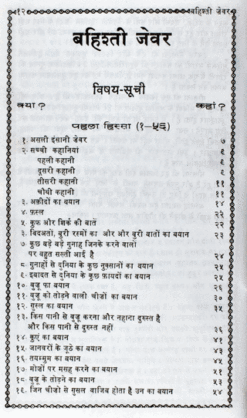 १२ बहिश्ती जेवर
बहिश्ती जेवर
विषय-सूची
क्या? कहां?
पहला हिस्सा (१-५६)
१. असली इंसानी जेवर ७
२. सच्ची कहानियां ९
पहली कहानी ९
दूसरी कहानी
तीसरी कहानी ११
चौथी कहानी ११
३. अक़ीदों का बयान १४
४. फ़स्ल २२
५. कुफ़ और शिर्क की बातें २२
६. बिदअतों, बुरी रस्मों का और और बुरी बातों का बयान २३
७. कुछ बड़े बड़े गुनाह जिनके करने वालों
पर बहुत सख्ती आई है २४
८. गुनाहों से दुनिया के कुछ नुक्सानों का बयान २५
९. इबादत से दुनिया के कुछ फ़ायदों का बयान २६
१०. वुज़ू का बयान २६
११. वुज़ू को तोड़ने वाली चीज़ों का बयान ३०
१२. गुस्ल का बयान ३५
१३. किस पानी से वुज़ू करना और नहाना दुरुस्त है
और किस पानी से दुरुस्त नहीं ३८
१४. कुएं का बयान ४१
१५. जानवरों के जूठे का बयान ४३
१६. तयम्मुम का बयान ४५
१७. मोज़ों पर मसह करने का बयान ५१
१८. वुज़ू के तोड़ने का बयान ५३
१९. जिन चीज़ों से गुसल वाजिब होता है उन का बयान ५४